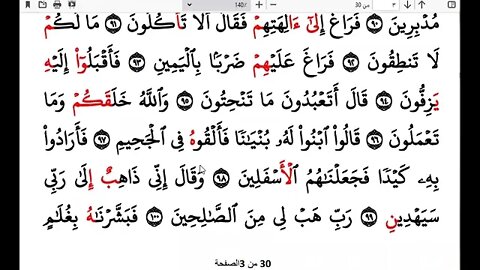 140/ ٣ من 30
مُدْبِرِينَ ٩٠ فَرَاغَ إِلَىٰٓ ءَالِهَتِهِمْ فَقَالَ أَلَا تَأْكُلُونَ ٩١ مَا لَكُمْ
لَا تَنطِقُونَ ٩٢ فَرَاغَ عَلَيْهِمْ ضَرْبًۢا بِٱلْيَمِينِ ٩٣ فَأَقْبَلُوٓا۟ إِلَيْهِ
يَزِفُّونَ ٩٤ قَالَ أَتَعْبُدُونَ مَا تَنْحِتُونَ ٩٥ وَٱللَّهُ خَلَقَكُمْ وَمَا
تَعْمَلُونَ ٩٦ قَالُوا۟ ٱبْنُوا۟ لَهُۥ بُنْيَـٰنًا فَأَلْقُوهُ فِى ٱلْجَحِيمِ ٩٧ فَأَرَادُوا۟
بِهِۦ كَيْدًا فَجَعَلْنَـٰهُمُ ٱلْأَسْفَلِينَ ٩٨ وَقَالَ إِنِّى ذَاهِبٌ إِلَىٰ رَبِّى
سَيَهْدِينِ ٩٩ رَبِّ هَبْ لِى مِنَ ٱلصَّـٰلِحِينَ ١٠٠ فَبَشَّرْنَـٰهُ بِغُلَـٰمٍ
30 من 3الصفحة